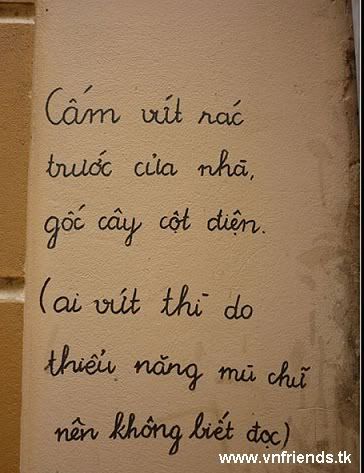 Cấm vứt rác
trước cửa nhà,
gốc cây cột điện.
(ai vứt thì do
thiểu năng mù chữ
nên không biết đọc)
www.vnfriends.tk